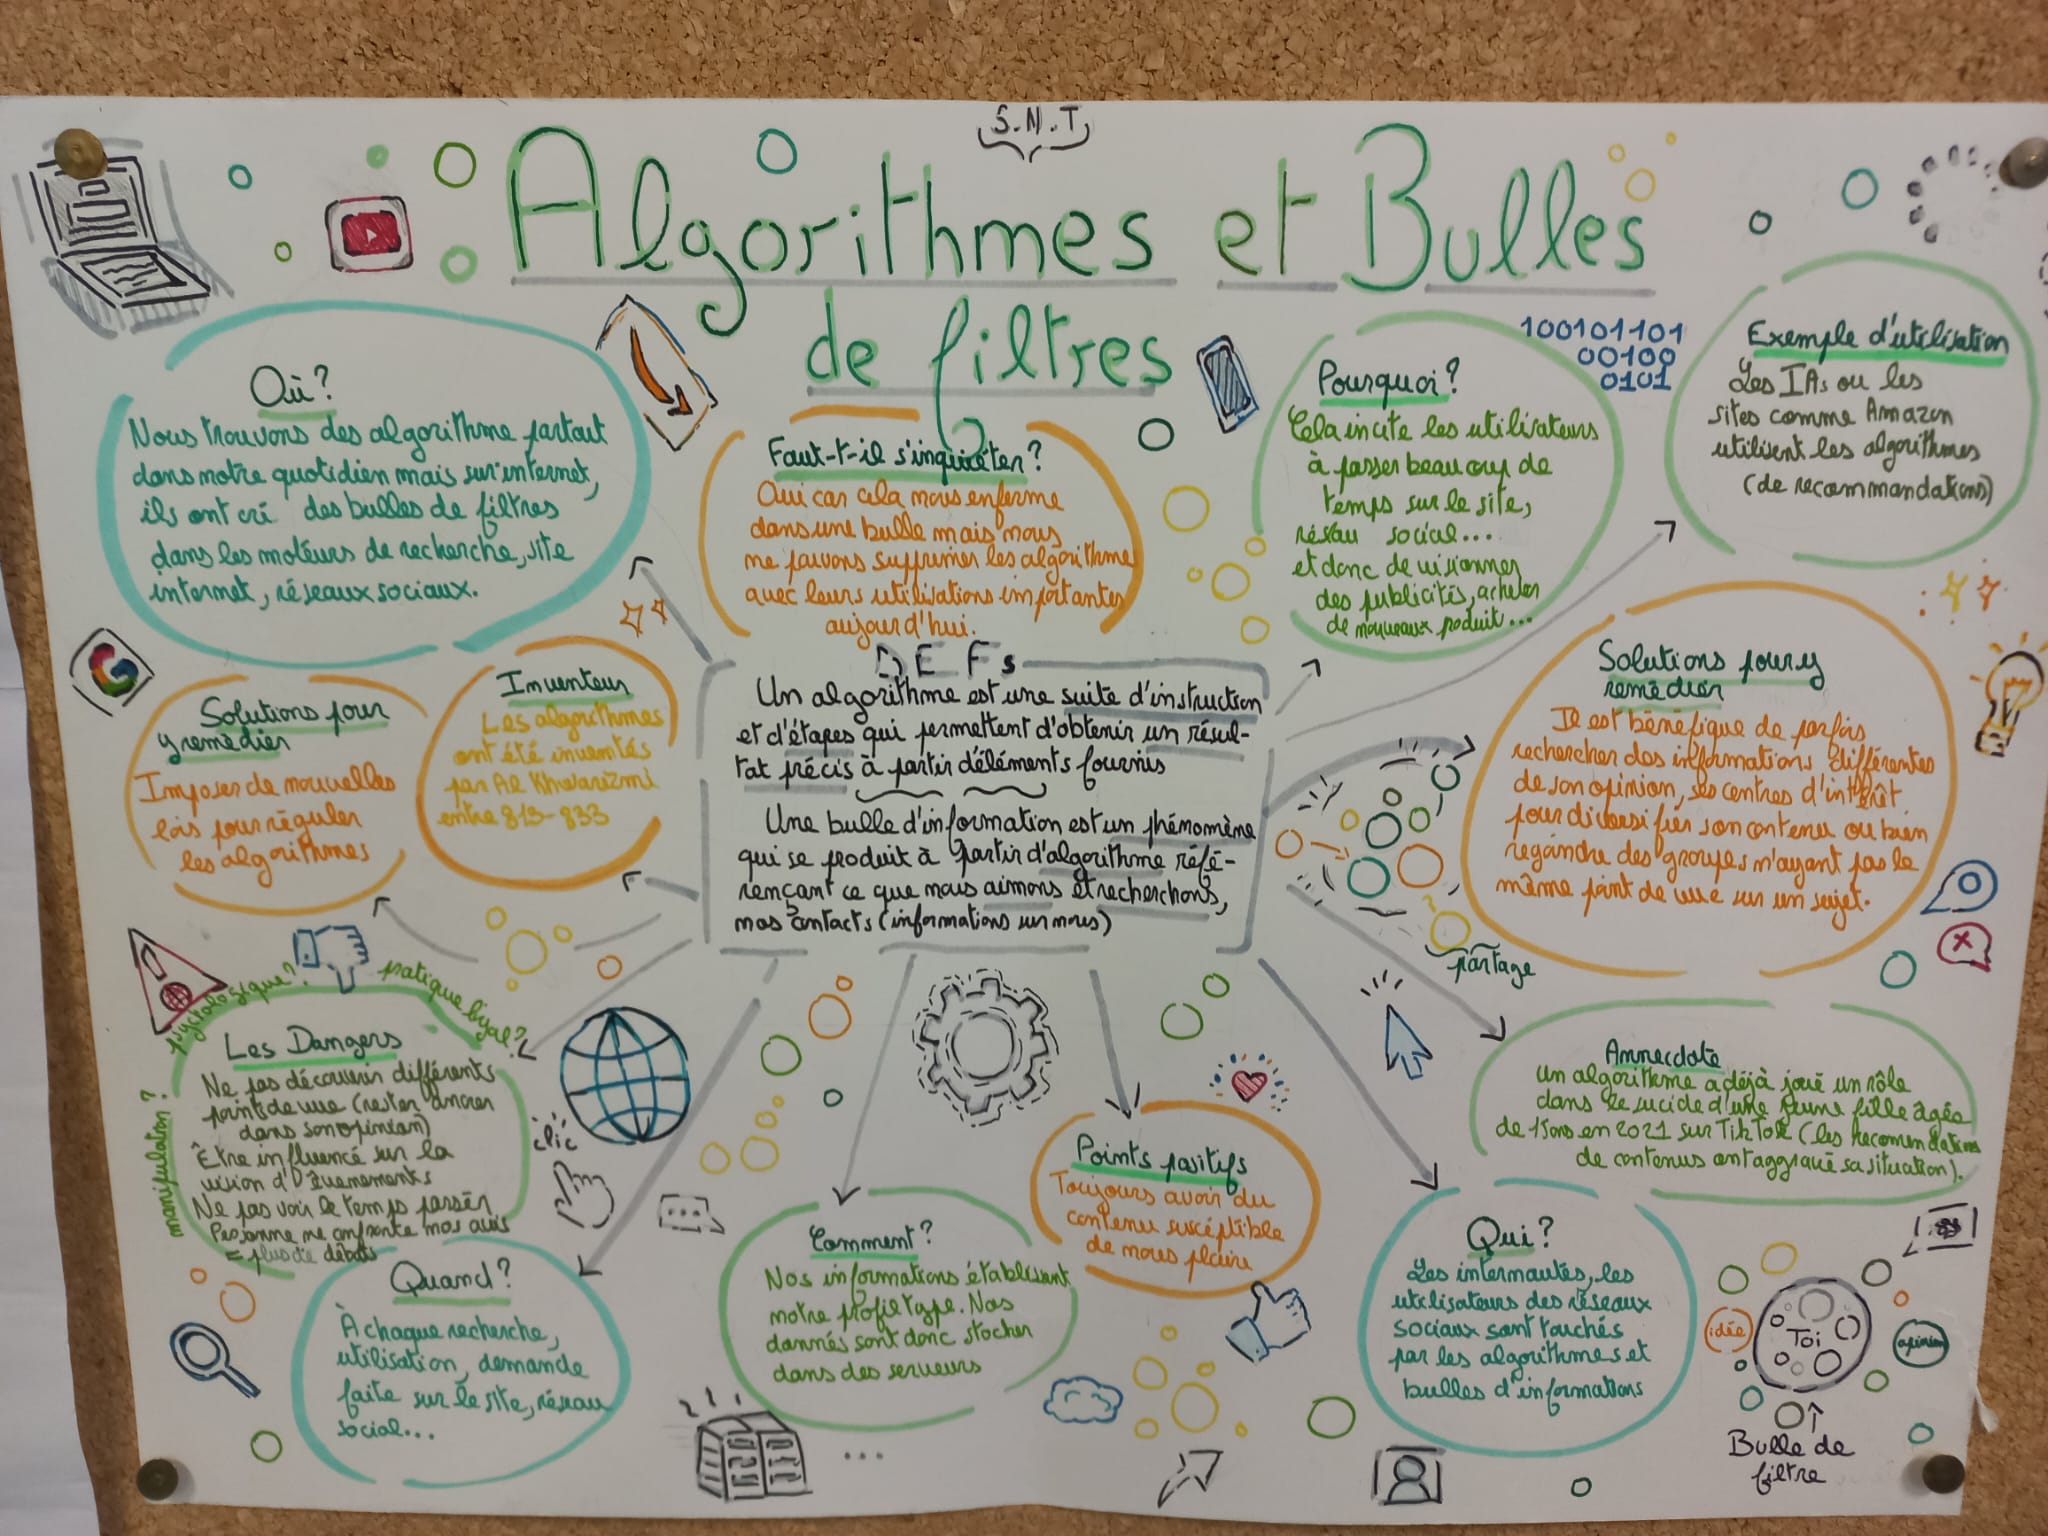 S.N.T
Algorithmes et Bulles
de filtres
Où?
Nous trouvons des algorithme partout
dans notre quotidien mais sur internet,
ils ont cré des bulles de filtres
dans les moteurs de recherche, site
internet, réseaux sociaux.
Faut-t-il s'inquiéter?
Oui car cela nous enferme
dans une bulle mais nous
ne pouvons supprimer les algorithme
avec leurs utilisations importantes
aujourd'hui.
Pourquoi?
Cela incite les utilisateurs
à passer beaucoup de
temps sur le site,
réseau social...
et donc de visionner
des publicités, acheter
de nouveaux produit...
100101101
00100
0101
Exemple d'utilisation
Les IAs ou les
sites comme Amazon
utilisent les algorithmes
(de recommandations)
Solutions pour
y remédier
Imposer de nouvelles
lois pour réguler
les algorithmes
Inventeur
Les algorithmes
ont été inventés
par Al Khwarizmi
entre 813-833
DEFs
Un algorithme est une suite d'instruction
et d'étapes qui permettent d'obtenir un résul-
tat précis à partir d'éléments fournis
Une bulle d'information est un phénomène
qui se produit à partir d'algorithme réfé-
rençant ce que nous aimons et recherchons,
nos contacts (informations sur nous)
Solutions pour y
remédier
Il est bénéfique de parfois
rechercher des informations différentes
de son opinion, ses centres d'intérêt
pour diversifier son contenu ou bien
regarder des groupes n'ayant pas le
même point de vue sur un sujet.
partage
psychologique?
pratique légal?
manipulation?
Les Dangers
Ne pas découvrir différents
points de vue (rester ancrer
dans son opinion)
Être influencé sur la
vision d'Évènements
Ne pas voir le temps passer
Personne ne confronte nos avis
= plus de débats
clic
Quand?
À chaque recherche,
utilisation, demande
faite sur le site, réseau
social...
Comment?
Nos informations établissent
notre profil type. Nos
donnés sont donc stocker
dans des serveurs
...
Points positifs
Toujours avoir du
contenu suscéptible
de nous plaire
Annecdote
Un algorithme a déjà joué un rôle
dans le sucide d'une jeune fille âgée
de 15ans en 2021 sur TikTok (les recomendations
de contenus ont aggravé sa situation).
Qui?
Les internautes, les
utilisateurs des réseaux
sociaux sont touchés
par les algorithmes et
bulles d'informations
idée
Toi
opinion
Bulle de
filtre